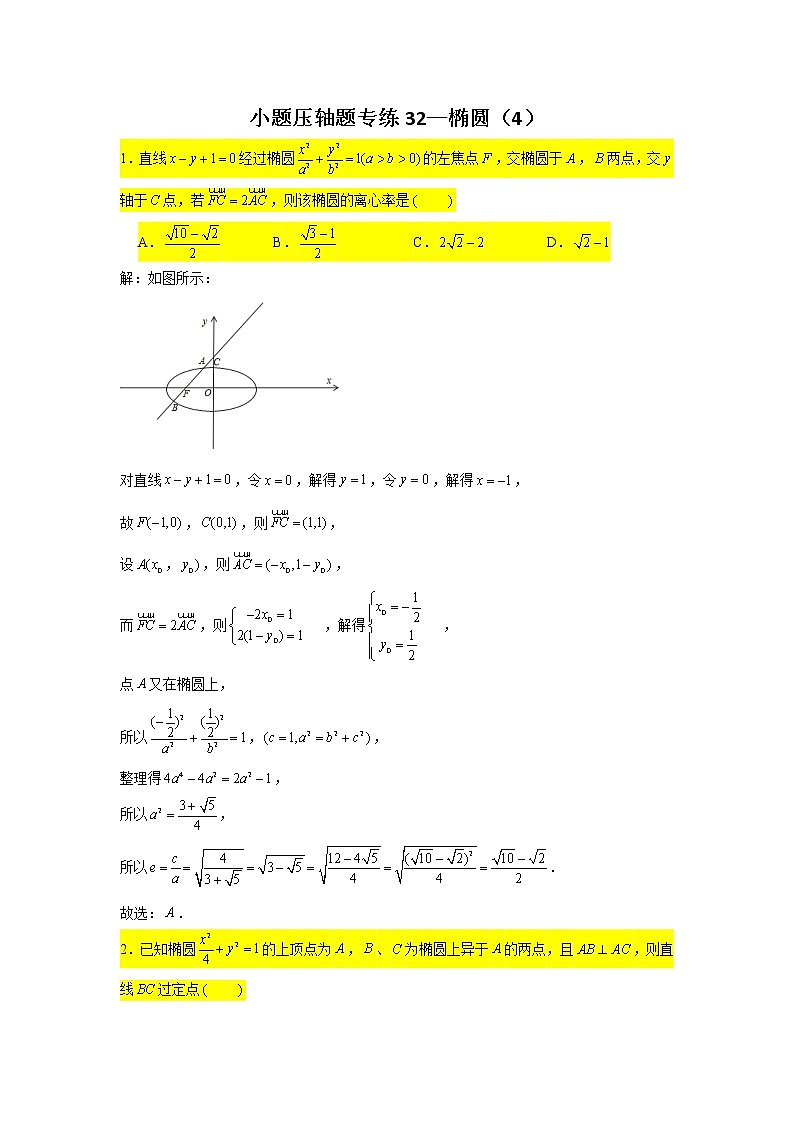 小题压轴题专练 32—椭圆（4）
1.直线 x − y + 1 = 0 经过椭圆 x²/a² + y²/b² = 1(a > b > 0) 的左焦点 F，交椭圆于 A，B 两点，交 y
轴于 C 点，若 FC = 2AC，则该椭圆的离心率是（　　）
A. (√10 − √2)/2　　B. (√3 − 1)/2　　C. 2√2 − 2　　D. √2 − 1
解：如图所示：
y
A C
x
F O
B
对直线 x − y + 1 = 0，令 x = 0，解得 y = 1，令 y = 0，解得 x = −1，
故 F(−1,0)，C(0,1)，则 FC = (1,1)，
设 A(x_D，y_D)，则 AC = (−x_D,1 − y_D)，
而 FC = 2AC，则 { −2x_D = 1 ; 2(1 − y_D) = 1，解得 { x_D = −1/2 ; y_D = 1/2，
点 A 又在椭圆上，
所以 (−1/2)²/a² + (1/2)²/b² = 1，(c = 1,a² = b² + c²)，
整理得 4a⁴ − 4a² = 2a² − 1，
所以 a² = (3 + √5)/4，
所以 e = c/a = √(4/(3 + √5)) = √(3 − √5) = √((12 − 4√5)/4) = √((√10 − √2)²/4) = (√10 − √2)/2．
故选：A．
2.已知椭圆 x²/4 + y² = 1 的上顶点为 A，B、C 为椭圆上异于 A 的两点，且 AB ⊥ AC，则直
线 BC 过定点（　　）